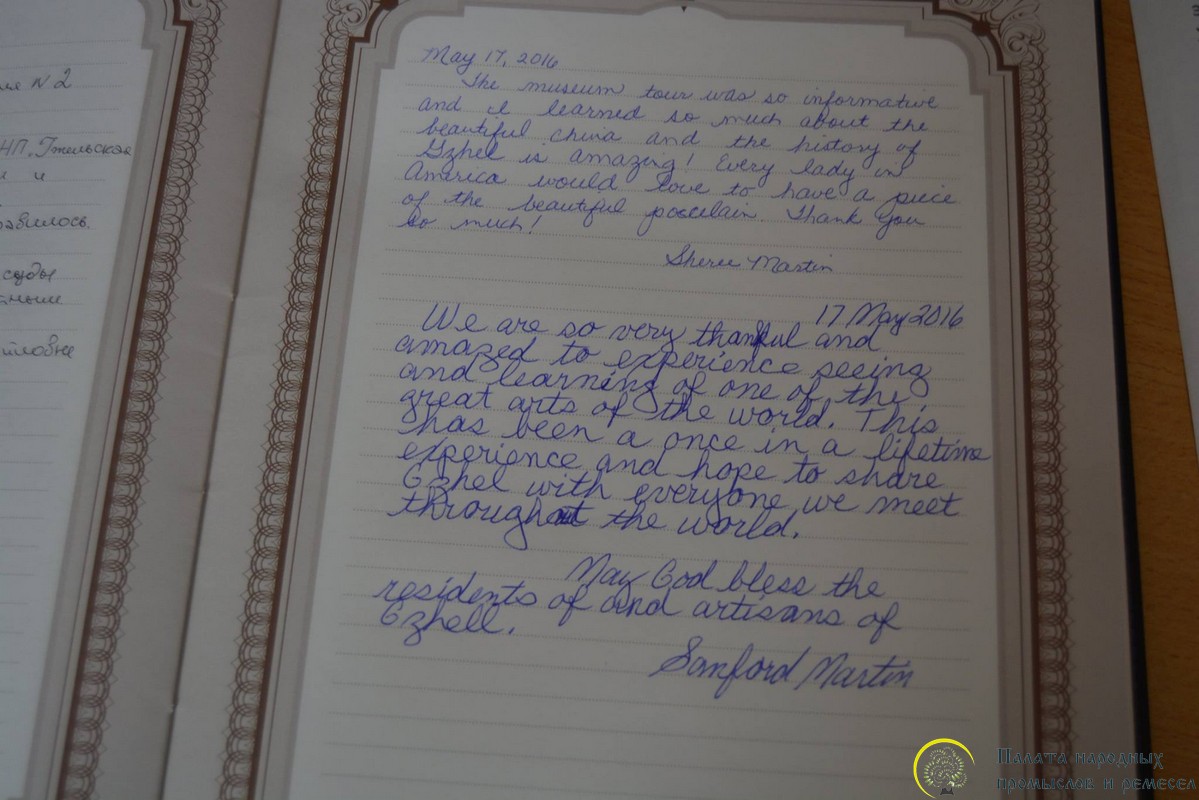 ие N 2
НП, Гжельская
и и
равилось.
суды
May 17, 2016
The museum tour was so informative
and I learned so much about the
beautiful china and the history of
Gzhel is amazing! Every lady in
America would love to have a piece
of the beautiful porcelain. Thank you
so much!
Sheree Martin
17 May 2016
We are so very thankful and
amazed to experience seeing
and learning of one of the
great arts of the world. This
has been a once in a lifetime
experience and hope to share
Gzhel with everyone we meet
throughout the world.
May God bless the
residents of and artisans of
Gzhell.
Sanford Martin
Палата народных
промыслов и ремесел